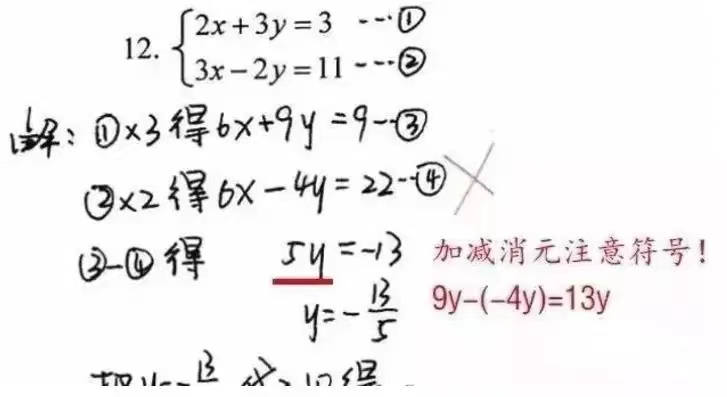 12. {2x+3y=3 ---①
3x-2y=11 ---②
解: ①×3得6x+9y=9--③
②×2得6x-4y=22--④
③-④得 5y=-13
加减消元注意符号!
y=-13/5
9y-(-4y)=13y
把y=-13/5代入